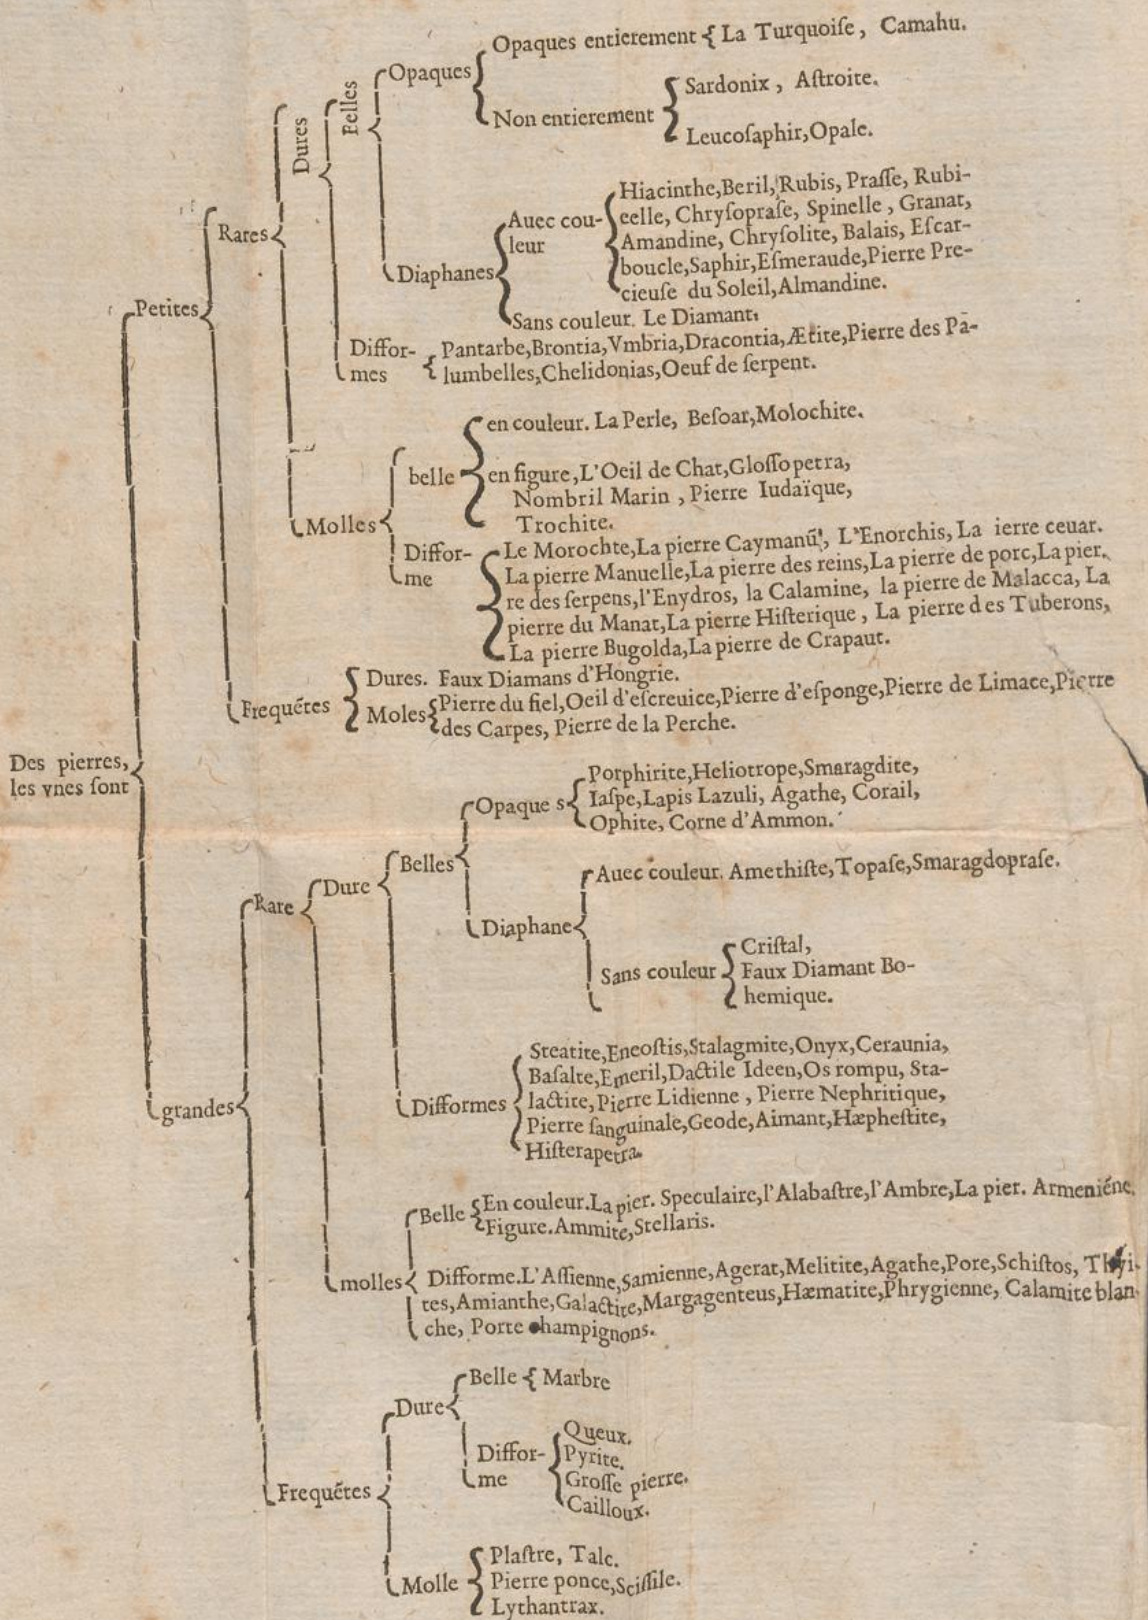 Opaques entierement { La Turquoiſe, Camahu.
Opaques
Sardonix, Aſtroite.
Non entierement
Leucoſaphir, Opale.
Belles
Dures
Hiacinthe, Beril, Rubis, Praſſe, Rubi-
celle, Chryſopraſe, Spinelle, Granat,
Auec cou-
leur
Amandine, Chryſolite, Balais, Eſcar-
boucle, Saphir, Eſmeraude, Pierre Pre-
cieuſe du Soleil, Almandine.
Diaphanes
Sans couleur. Le Diamant.
Rares
Petites
Diffor-
mes
Pantarbe, Brontia, Vmbria, Dracontia, Ætite, Pierre des Pa-
lumbelles, Chelidonias, Oeuf de ſerpent.
en couleur. La Perle, Beſoar, Molochite.
belle
en figure, L'Oeil de Chat, Gloſſopetra,
Nombril Marin, Pierre Iudaïque,
Trochite.
Molles
Diffor-
me
Le Morochte, La pierre Caymanũ, L'Enorchis, La ierre ceuar.
La pierre Manuelle, La pierre des reins, La pierre de porc, La pier.
re des ſerpens, l'Enydros, la Calamine, la pierre de Malacca, La
pierre du Manat, La pierre Hiſterique, La pierre des Tuberons,
La pierre Bugolda, La pierre de Crapaut.
Frequẽtes
Dures. Faux Diamans d'Hongrie.
Moles
Pierre du fiel, Oeil d'eſcreuice, Pierre d'eſponge, Pierre de Limace, Pierre
des Carpes, Pierre de la Perche.
Des pierres,
les vnes ſont
Opaque s
Porphirite, Heliotrope, Smaragdite,
Iaſpe, Lapis Lazuli, Agathe, Corail,
Ophite, Corne d'Ammon.
Belles
Dure
Rare
Auec couleur. Amethiſte, Topaſe, Smaragdopraſe.
Diaphane
Sans couleur
Criſtal,
Faux Diamant Bo-
hemique.
Difformes
Steatite, Eneoſtis, Stalagmite, Onyx, Ceraunia,
Baſalte, Emeril, Dactile Ideen, Os rompu, Sta-
lactite, Pierre Lidienne, Pierre Nephritique,
Pierre ſanguinale, Geode, Aimant, Hæpheſtite,
Hiſterapetra.
grandes
Belle
En couleur. La pier. Speculaire, l'Alabaſtre, l'Ambre, La pier. Armeniẽne,
Figure. Ammite, Stellaris.
molles
Difforme. L'Aſſienne, Samienne, Agerat, Melitite, Agathe, Pore, Schiſtos, Thyi-
tes, Amianthe, Galactite, Margagenteus, Hæmatite, Phrygienne, Calamite blan-
che, Porte champignons.
Belle { Marbre
Dure
Diffor-
me
Queux.
Pyrite.
Groſſe pierre.
Cailloux.
Frequẽtes
Molle
Plaſtre, Talc.
Pierre ponce, Sciſſile.
Lythantrax.